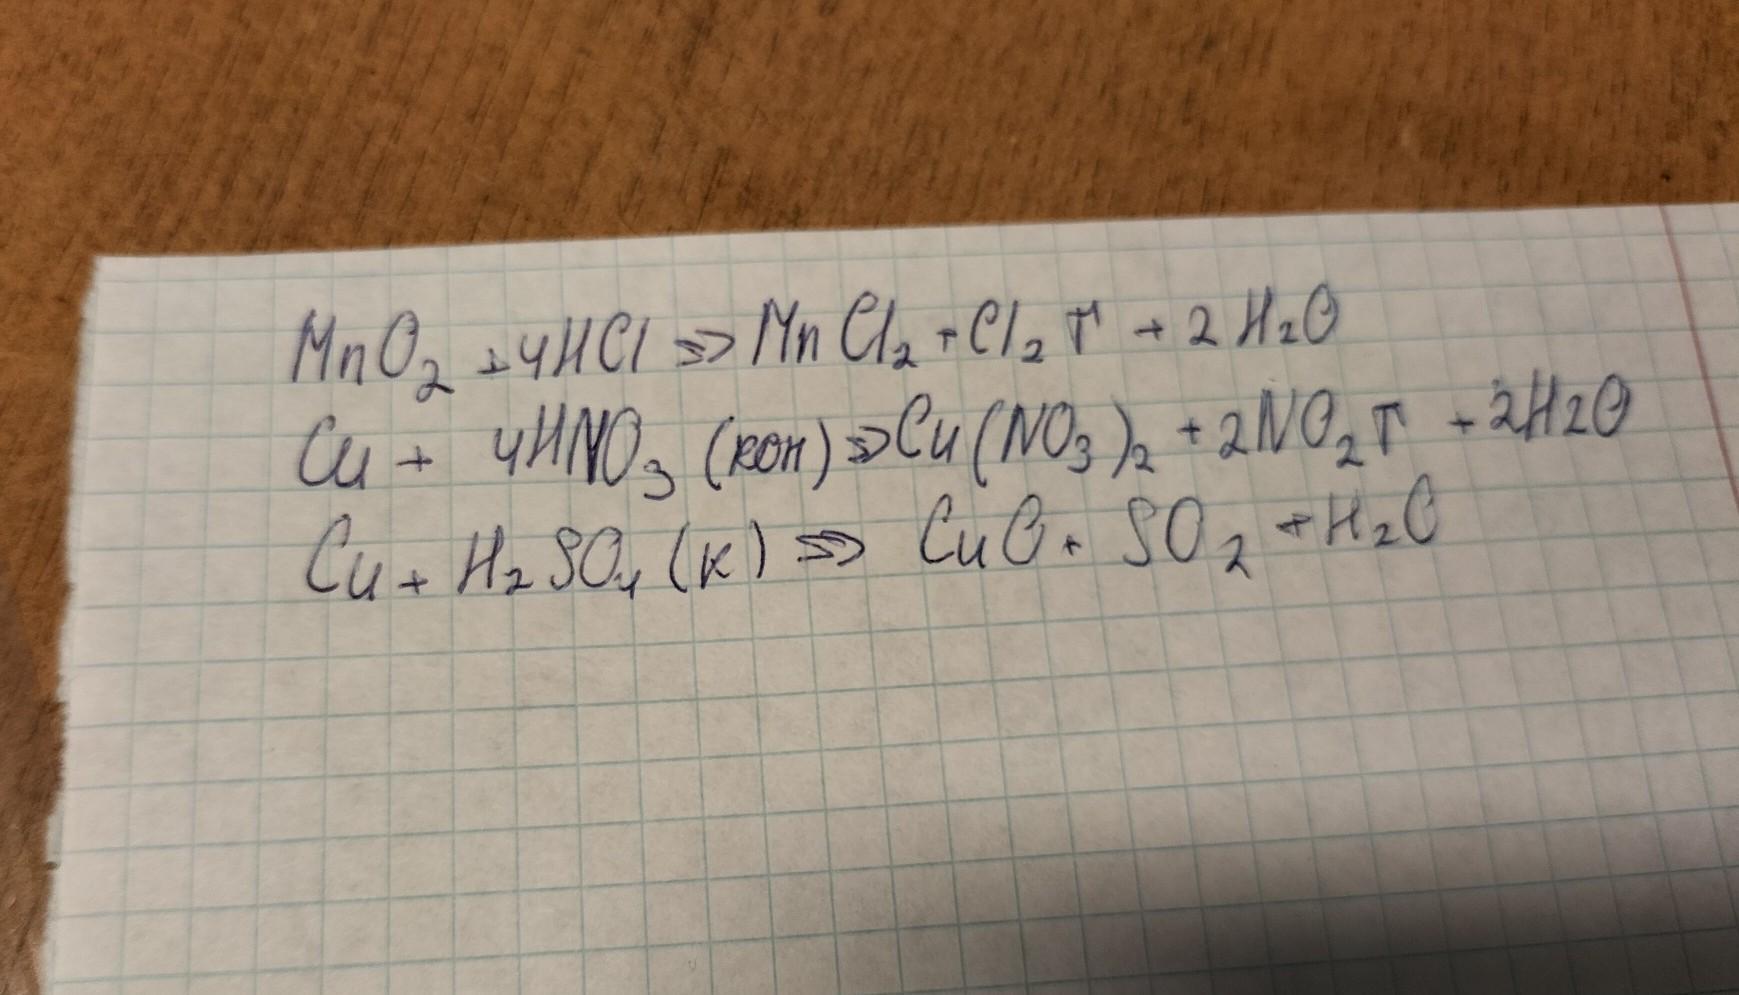 MnO₂ + 4HCl ⇒ MnCl₂ + Cl₂↑ + 2H₂O
Cu + 4HNO₃ (кон) ⇒ Cu(NO₃)₂ + 2NO₂↑ + 2H2O
Cu + H₂SO₄ (к) ⇒ CuO + SO₂ + H₂O